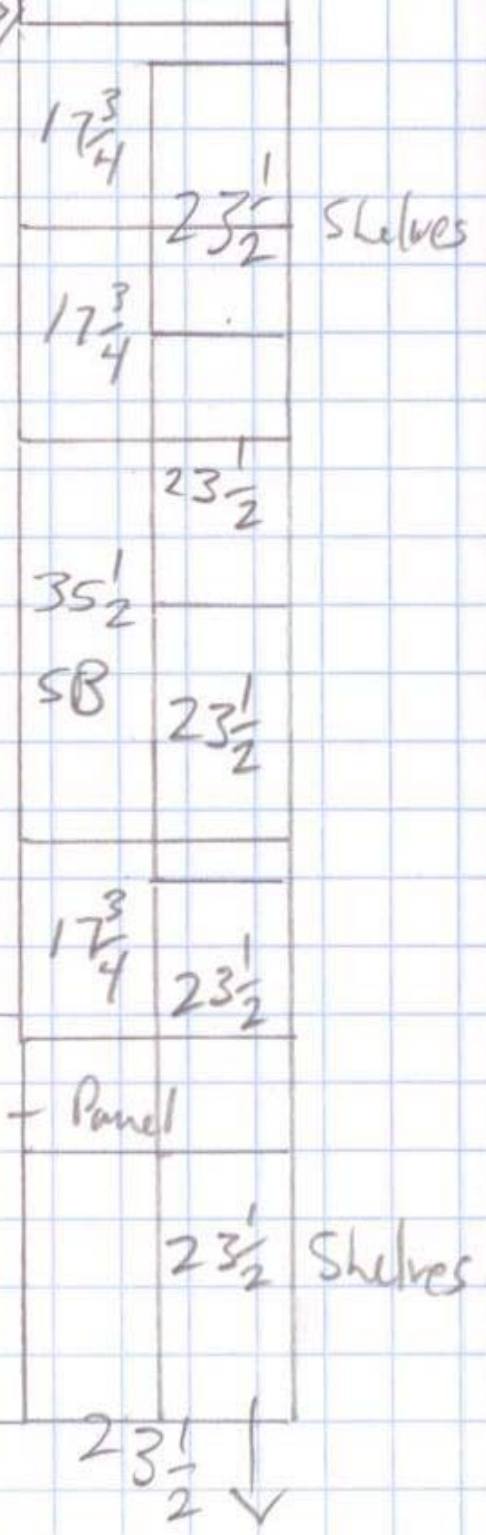 17 3/4
23 1/2 Shelves
17 3/4
23 1/2
35 1/2
SB
23 1/2
17 3/4
23 1/2
- Panel
23 1/2 Shelves
23 1/2